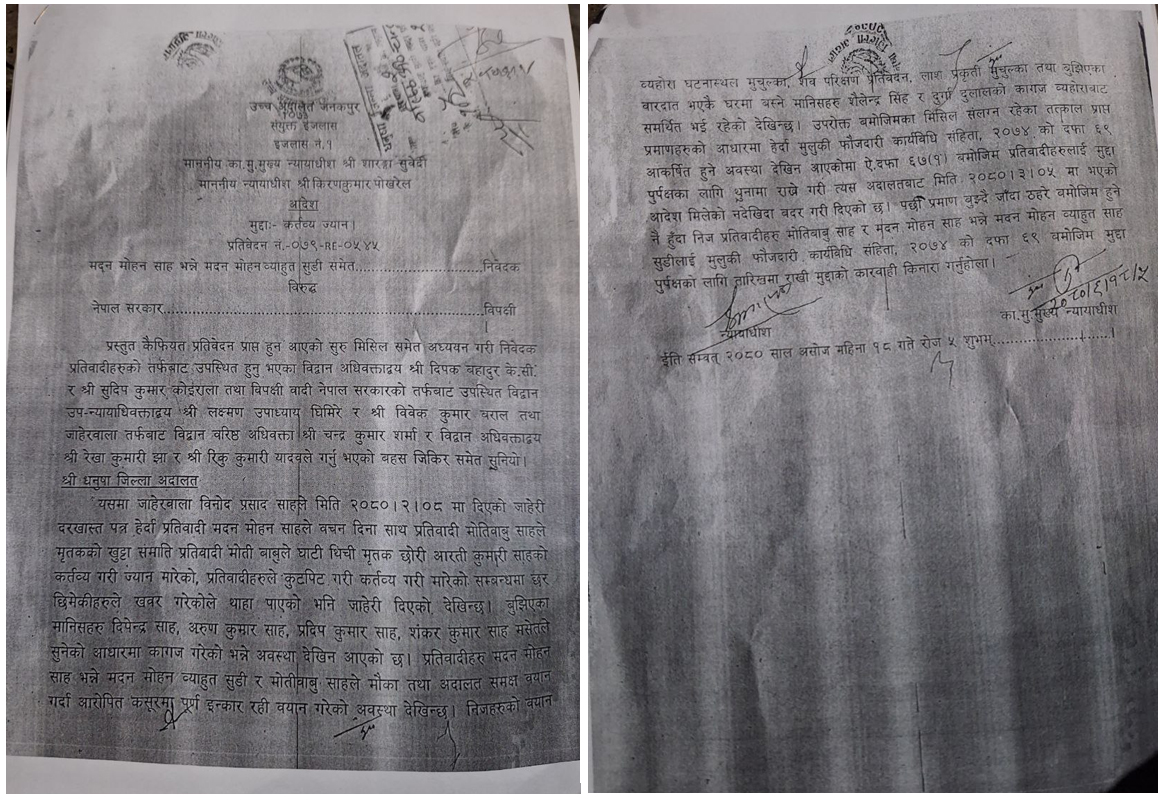 उच्च अदालत जनकपुर
संयुक्त इजलास
इजलास नं.१
माननीय का.मु.मुख्य न्यायाधीश श्री शारङ्गा सुवेदी
माननीय न्यायाधीश श्री किरणकुमार पोखरेल
आदेश
मुद्दाः- कर्तव्य ज्यान।
प्रतिवेदन नं.-०७९-RE-०५४५
मदन मोहन साह भन्ने मदन मोहन व्याहुत सुडी समेत..............................निवेदक
विरुद्ध
नेपाल सरकार.................................................................................विपक्षी
प्रस्तुत कैफियत प्रतिवेदन प्राप्त हुन आएको सुरु मिसिल समेत अध्ययन गरी निवेदक
प्रतिवादीहरुको तर्फबाट उपस्थित हुनु भएका विद्वान अधिवक्ताद्वय श्री दिपक बहादुर के.सी.
र श्री सुदिप कुमार कोइराला तथा विपक्षी वादी नेपाल सरकारको तर्फबाट उपस्थित विद्वान
उप-न्यायाधिवक्ताद्वय श्री लक्ष्मण उपाध्याय घिमिरे र श्री विवेक कुमार बराल तथा
जाहेरवाला तर्फबाट विद्वान वरिष्ठ अधिवक्ता श्री चन्द्र कुमार शर्मा र विद्वान अधिवक्ताद्वय
श्री रेखा कुमारी झा र श्री रिकु कुमारी यादवले गर्नु भएको बहस जिकिर समेत सुनियो।
श्री धनुषा जिल्ला अदालत
यसमा जाहेरवाला विनोद प्रसाद साहले मिति २०८०।२।०८ मा दिएको जाहेरी
दरखास्त पत्र हेर्दा प्रतिवादी मदन मोहन साहले वचन दिना साथ प्रतिवादी मोतिबाबु साहले
मृतकको खुट्टा समाति प्रतिवादी मोती बाबुले घाटी थिची मृतक छोरी आरती कुमारी साहको
कर्तव्य गरी ज्यान मारेको, प्रतिवादीहरुले कुटपिट गरी कर्तव्य गरी मारेको सम्बन्धमा छर
छिमेकीहरुले खबर गरेकोले थाहा पाएको भनि जाहेरी दिएको देखिन्छ। बुझिएका
मानिसहरु दिपेन्द्र साह, अरुण कुमार साह, प्रदिप कुमार साह, शंकर कुमार साह मसेतले
सुनेको आधारमा कागज गरेको भन्ने अवस्था देखिन आएको छ। प्रतिवादीहरु मदन मोहन
साह भन्ने मदन मोहन व्याहुत सुडी र मोतीबाबु साहले मौका तथा अदालत समक्ष बयान
गर्दा आरोपित कसूरमा पूर्ण इन्कार रही बयान गरेको अवस्था देखिन्छ। निजहरुको बयान
व्यहोरा घटनास्थल मुचुल्का, शव परिक्षण प्रतिवेदन, लाश प्रकृती मुचुल्का तथा बुझिएका
वारदात भएकै घरमा बस्ने मानिसहरु शैलेन्द्र सिंह र दुर्गा दुलालको कागज व्यहोराबाट
समर्थित भई रहेको देखिन्छ। उपरोक्त बमोजिमका मिसिल संलग्न रहेका तत्काल प्राप्त
प्रमाणहरुको आधारमा हेर्दा मुलुकी फौजदारी कार्यविधि संहिता, २०७४ को दफा ६९
आकर्षित हुने अवस्था देखिन आएकोमा ऐ.दफा ६७(१) बमोजिम प्रतिवादीहरुलाई मुद्दा
पुर्पक्षका लागि थुनामा राख्ने गरी त्यस अदालतबाट मिति २०८०।३।०५ मा भएको
आदेश मिलेको नदेखिदा बदर गरी दिएको छ। पछी प्रमाण बुझ्दै जाँदा ठहरे बमोजिम हुने
नै हुँदा निज प्रतिवादीहरु मोतिबाबु साह र मदन मोहन साह भन्ने मदन मोहन व्याहुत साह
सुडीलाई मुलुकी फौजदारी कार्यविधि संहिता, २०७४ को दफा ६९ बमोजिम मुद्दा
पुर्पक्षको लागि तारिखमा राखी मुद्दाको कारवाही किनारा गर्नुहोला।
२०८०/६/१८/५
न्यायाधीश
का.मु.मुख्य न्यायाधीश
ईति सम्वत् २०८० साल असोज महिना १८ गते रोज ५ शुभम्..............................।